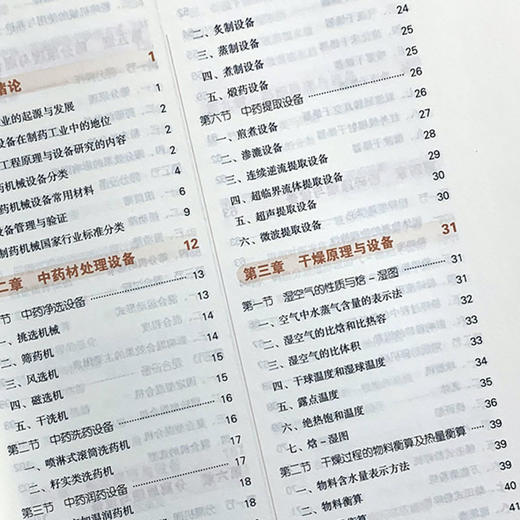 绪论 1
业的起源与发展 1
设备在制药工业中的地位 2
工程原理与设备研究的内容 2
药机械设备分类 2
药机械设备常用材料 4
设备管理与验证 6
制药机械国家行业标准分类 9
二章 中药材处理设备 12
节 中药净选设备 13
一、挑选机械 13
二、筛药机 14
三、风选机 14
四、磁选机 14
五、干洗机 15
第二节 中药洗药设备 16
一、喷淋式滚筒洗药机 16
二、籽实类洗药机 17
第三节 中药润药设备 17
加温润药机 18
二、炙制设备 24
三、蒸制设备 24
四、煮制设备 25
五、煅药设备 25
第六节 中药提取设备 26
一、煎煮设备 26
二、渗漉设备 28
三、连续逆流提取设备 29
四、超临界流体提取设备 30
五、超声提取设备 30
六、微波提取设备 30
第三章 干燥原理与设备 31
第一节 湿空气的性质与焓-湿图 31
一、空气中水蒸气含量的表示法 31
二、湿空气的比焓和比热容 32
三、湿空气的比体积 33
四、干球温度和湿球温度 34
五、露点温度 35
六、绝热饱和温度 36
七、焓-湿图 36
第二节 干燥过程的物料衡算及热量衡算 39
一、物料含水量表示方法 39
二、物料衡算 40
41